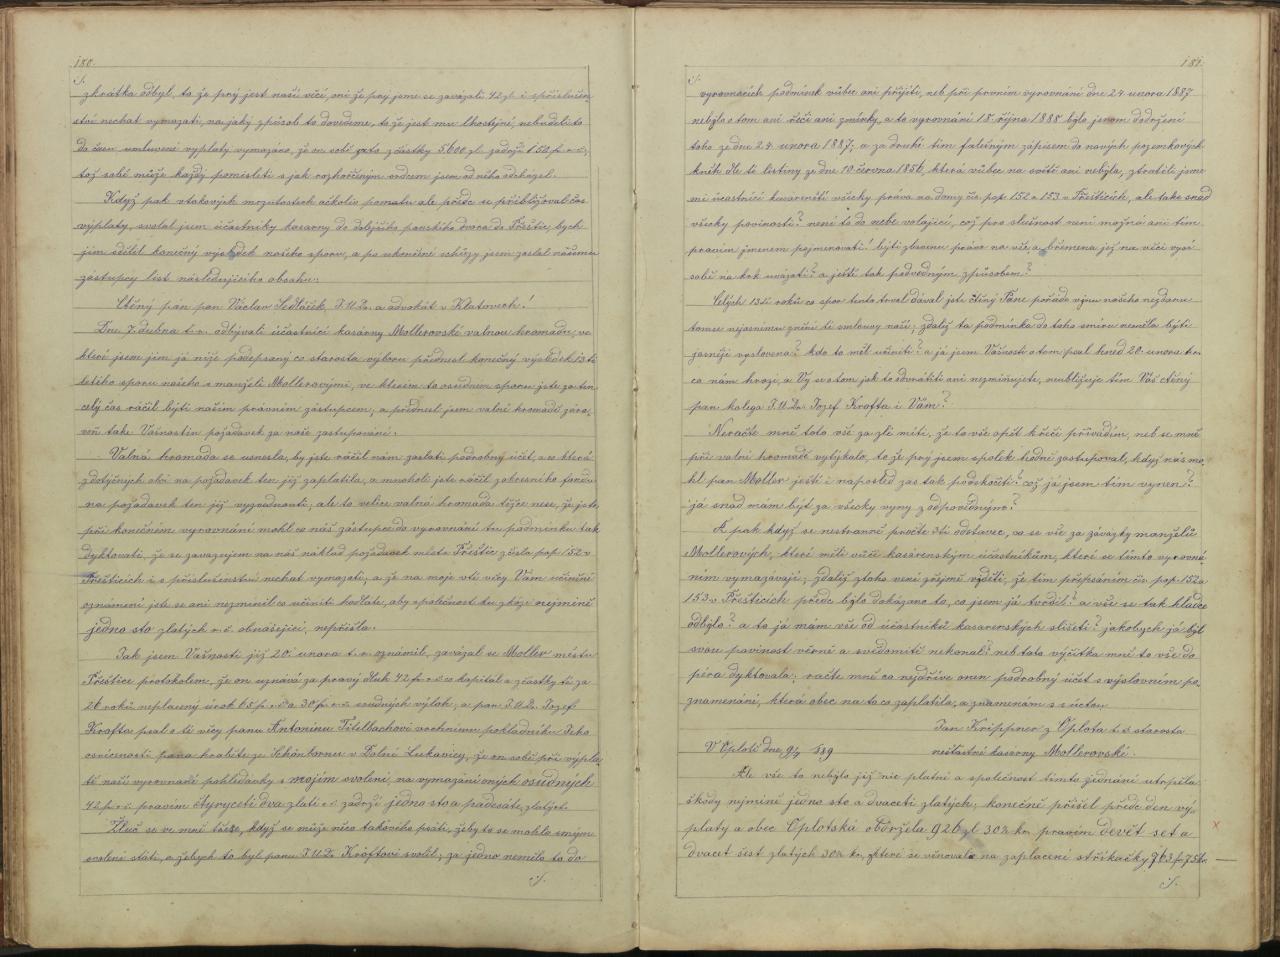 180.
zkrátka odbyl, to že prý jest naší věcí, oni že prý jsme se zavázali 42 zl. i s příslušen-
ství nechat vymazati, na jaký způsob to dovedeme, to že jest mu lhostejné, nebudeli to
do času umluvené výplaty vymazáno, že on sobě z částky 5.600 zl. zadrží 152 f. r. č.,
tož sobě může každý pomysleti s jak rozhořčeným srdcem jsem od něho odcházel.
Když pak v takových mrzutostech ačkoliv pomalu ale přece se přibližoval čas
výplaty, svolal jsem účastníky kasárny do dolejšího panského dvora do Přeštic, bych
jim sdělil konečný výsledek našeho sporu, a po ukončené schůzy jsem zaslal našemu
zástupcy list následujícího obsahu:
Ctěný pán pan Václav Sedláček, J.U.Dr. a advokát v Klatovech!
Dne 7. dubna t. r. odbývali účastníci kasárny Mollerovské valnou hromadu, ve
které jsem jim já níže podepsaný co starosta výboru přednesl konečný výsledek 13ti
letého sporu našeho s manželi Mollerovými, ve kterém to osudném sporu jste za ten
celý čas ráčil býti naším právním zástupcem, a přednesl jsem valné hromadě záro-
veň také Vašnostin požadavek za naše zastupování.
Valná hromada se usnesla, by jste ráčil nám zaslati podrobný účet, a co která
z dotyčných obcí na požadavek ten již zaplatila, a mnoholi jste ráčil z okresního fondu
na požadavek ten již vyzvednouti, ale to velice valná hromada těžce nese, že jste
při konečném vyrovnání mohl co náš zástupce do vyrovnání tu podmínku tak
dyktovati, že se zavazujem na náš náklad požadavek města Přeštic z čísla pop. 152 v
Přešticích i s příslušenství nechat vymazati, a že na moje v té věcy Vám učiněné
oznámení jste se ani nezmínil co učiniti hodláte, aby společnost tu ztáze nejméně
jedno sto zlatých r. č. obnášející, nepřišla.
Jak jsem Vašnosti již 20. února t. r. oznámil, zavázal se Moller městu
Přeštice protokolem, že on uznává za pravý dluh 42 f. r. č. co kapitál a z částky té za
26 roků neplacený úrok 65 f. r. č. a 30 f. r. č. soudných výloh, a pan J.U.Dr. Jozef
Krofta psal o té věcy panu Antonínu Titelbachovi vrchnímu pokladníku Jeho
osvícenosti pana hraběte ze Schönbornu v Dolní Lukavicy, že on sobě při výpla-
tě naší vyrovnané pohledávky s mojím svolení, na vymazání oných osudných
42 f. r. č. pravím čtyrycetidva zlaté r. č. zadrží jedno sto a padesáte zlatých.
Žluč se ve mně třese, když se může něco takového psáti, žeby se to mohlo s mým
svolení státi, a žebych to byl panu J.U.Dr. Kroftovi svolil; za jedno nemělo to do
./.
181.
./.
vyrovnacích podmínek vůbec ani přijíti, neb při prvním vyrovnání dne 24. února 1887
nebylo o tom ani řeči ani zmínky, a to vyrovnání 18. října 1888 bylo jenom dodržení
toho ze dne 24. února 1887; a za druhé tím falečným zápisem do nových pozemkových
knih dle té listiny ze dne 10. června 1856, která vůbec na světě ani nebyla, ztratili jsme
my účastníci kasárenští všecky práva na domy čís. pop. 152 a 153 v Přešticích, ale také snad
všecky povinosti? není to do nebe volající, což pro slušnost není možná ani tím
pravím jmenem pojmenovati! býti zbavenu práva na věc a břemena jež na věci vyzí
sobě na krk uvázati? a ještě tak podvodným způsobem?
Celých 13ti roků co spor tento trval dával jste ctěný Pane pořade vynu našeho nezdaru
tomu nejasnímu znění té smlouvy naší; zdaliž ta podmínka do toho smíru neměla býti
jasněji vyslovena? kdo to měl učiniti? a já jsem Vašnosti o tom psal hned 20. února t. r.
co nám hrozí, a Vy se o tom jak to odvrátiti ani nezmiňujete, neubližuje tím Váš ctěný
pan kolega J.U.Dr. Jozef Krofta i Vám?
Neračte mně toto vše za zlé míti, že to vše opět k řeči přivádím, neb se mně
při valné hromadě vytýkalo, to že prý jsem spolek hodně zastupoval, když nás mo-
hl pan Moller ještě i naposled zas tak podskočiti? což já jsem tím vynen?
já snad mám být za všecky vyny zodpovídným?
A pak když se nestraně pročte 3tí odstavec, co se vše za závazky manželů
Mollerových, které měli vůči kasárenským účastníkům, které se tímto vyrovná-
ním vymazávají; zdaliž z toho není zřejmě vyděti, že tím přepsáním čís. pop. 152 a
153 v Přešticích přede bylo dokázano to, co jsem já tvrdil? a vše se tak hladce
odbylo? a to já mám vše od účastníků kasárenských slišeti? jakobych já byl
svou povinost věrně a svědomitě nekonal? neb tato výčitka mně to vše do
péra dyktovala; račte mně co nejdříve onen podrobný účet s výslovním po-
znamenání, která obec na to co zaplatila, a znamenám s s úctou
Jan Krippner z Oplota t. č. starosta
V Oplotě dne 9/4 889 nešťastné kasárny Mollerovské.
Ale vše to nebylo již nic platné a společnost tímto jednání utrpěla
škody nejméně jedno sto a dvaceti zlatých; konečně přišel přede den vý-
platy a obec Oplotská obdržela 926 zl 30½ kr. pravím devět set a
dvacet šest zlatých 30½ kr. které se věnovalo na zaplacení stříkačky 763 f. 75 kr.
./.